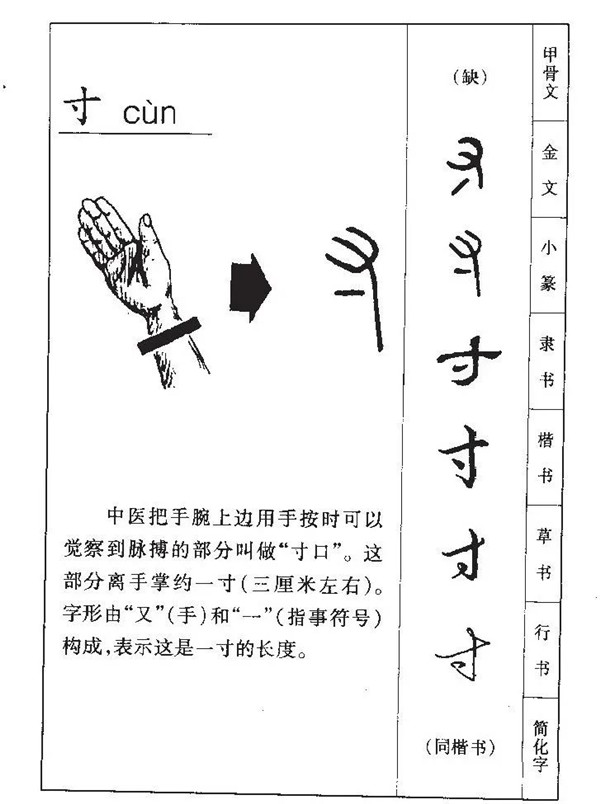 寸 cùn
中医把手腕上边用手按时可以
觉察到脉搏的部分叫做“寸口”。这
部分离手掌约一寸(三厘米左右)。
字形由“又”(手)和“一”(指事符号)
构成,表示这是一寸的长度。
(缺)
甲骨文
金文
小篆
寸
隶书
寸
楷书
寸
草书
寸
行书
(同楷书)
简化字